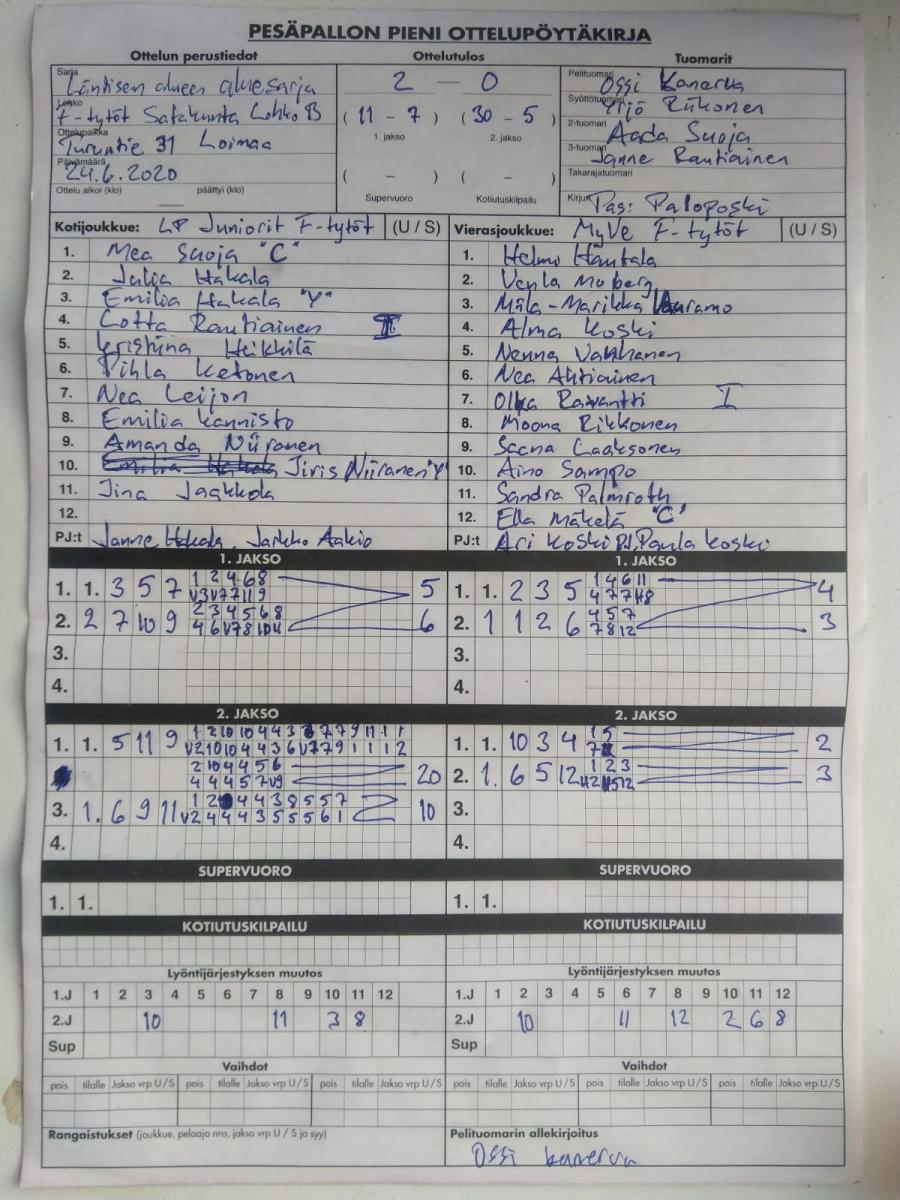 PESÄPALLON PIENI OTTELUPÖYTÄKIRJA
Ottelun perustiedot
Sarja
Läntisen alueen aluesarja
Lohko
F-tytöt Satakunta Lohko B
Ottelupaikka
Turuntie 31 Loimaa
Päivämäärä
24.6.2020
Ottelu alkoi (klo) päättyi (klo)
Ottelutulos
2 — 0
( 11 - 7 ) ( 30 - 5 )
1. jakso 2. jakso
( - ) ( - )
Supervuoro Kotiutuskilpailu
Tuomarit
Pelituomari
Ossi Kanerva
Syöttötuomari
Yrjö Riikonen
2-tuomari
Aada Suoja
3-tuomari
Janne Rautiainen
Takarajatuomari
Kirjuri
Pas: Paloposki
Kotijoukkue: LP Juniorit F-tytöt (U / S)
1. Mea Suoja "C"
2. Julia Hakala
3. Emilia Hakala "Y"
4. Lotta Rautiainen
5. Kristiina Heikkilä
6. Vihla Ketonen
7. Nea Leijon
8. Emilia Kannisto
9. Amanda Niiranen
10. Emilia Hakala Iiris Niiranen "Y"
11. Iina Jaakkola
12.
PJ:t Janne Hakala, Jarkko Aakio
Vierasjoukkue: MyVe F-tytöt (U / S)
1. Helmi Hantala
2. Venla Moberg
3. Miila-Marikka
4. Alma Koski
5. Nenna Vanhanen
6. Nea Ahtiainen
7. Ravantti I
8. Moona Rikkonen
9. Saana Laaksonen
10. Aino Sampo
11. Sandra Palmroth
12. Ella Mäkelä "C"
PJ:t Ari Koski PJ, Paula Koski
1. JAKSO
1. 1. 3 5 7 1 2 4 6 8 5
V3 V7 7 11 9
2. 2 7 10 9 2 3 4 5 6 8 6
4 6 V7 8 10 11
3.
4.
1. JAKSO
1. 1. 2 3 5 1 4 6 11 4
4 7 7 H8
2. 1 1 2 6 4 5 7 3
7 8 12
3.
4.
2. JAKSO
1. 1. 5 11 9 1 2 10 10 4 4 3 7 7 9 11 1 1
V2 10 10 4 4 3 6 V7 7 9 1 1 1 2
2 10 4 4 5 6 20
4 4 4 5 7 V9
3. 1. 6 9 11 1 2 4 4 3 8 5 5 7 10
V2 4 4 4 3 5 5 5 6 1
4.
2. JAKSO
1. 1. 10 3 4 1 5 2
2. 1. 6 5 12 1 2 3 3
3.
4.
SUPERVUORO
1. 1.
SUPERVUORO
1. 1.
KOTIUTUSKILPAILU
KOTIUTUSKILPAILU
Lyöntijärjestyksen muutos
1.J 1 2 3 4 5 6 7 8 9 10 11 12
2.J 10 11 3 8
Sup
Lyöntijärjestyksen muutos
1.J 1 2 3 4 5 6 7 8 9 10 11 12
2.J 10 11 12 2 6 8
Sup
Vaihdot
pois tilalle Jakso vrp U / S pois tilalle Jakso vrp U / S pois tilalle Jakso vrp U / S
Vaihdot
pois tilalle Jakso vrp U / S pois tilalle Jakso vrp U / S pois tilalle Jakso vrp U / S
Rangaistukset (joukkue, pelaaja nro, jakso vrp U / S ja syy)
Pelituomarin allekirjoitus
Ossi Kanerva